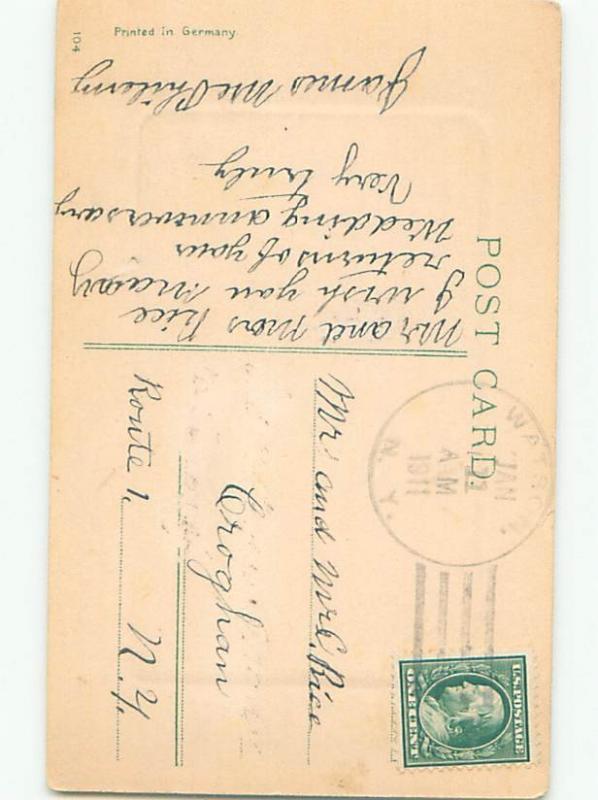 POST CARD.
Printed in Germany.
104
Mr and Mrs Rice
I wish you many
returns of your
Wedding anniversary
Very truly
James McPhilemy
WATSON,
JAN
A M
1911
N. Y.
U.S. POSTAGE
ONE CENT
Mr and Mrs. Rice
Croghan
Route 1, N.Y.